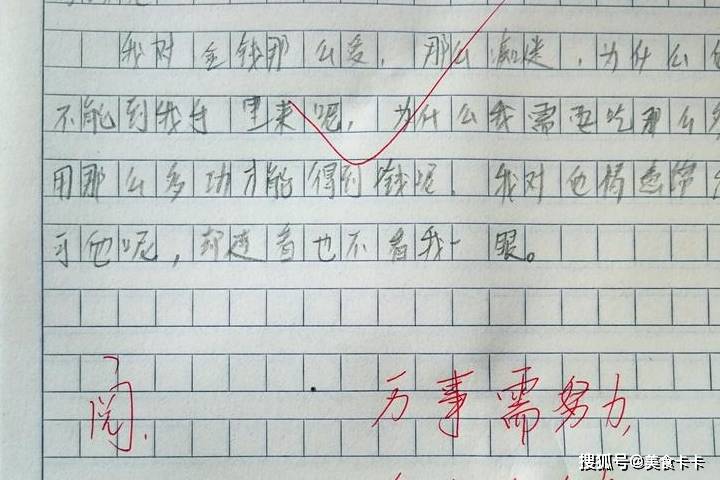 我对金钱那么爱，那么痴迷，为什么
不能到我手里来呢，为什么我需要吃那么
用那么多功才能得到钱呢。我对他情意
可他呢，却连看也不看我一眼。
阅.
万事需努力,
搜狐号@美食卡卡